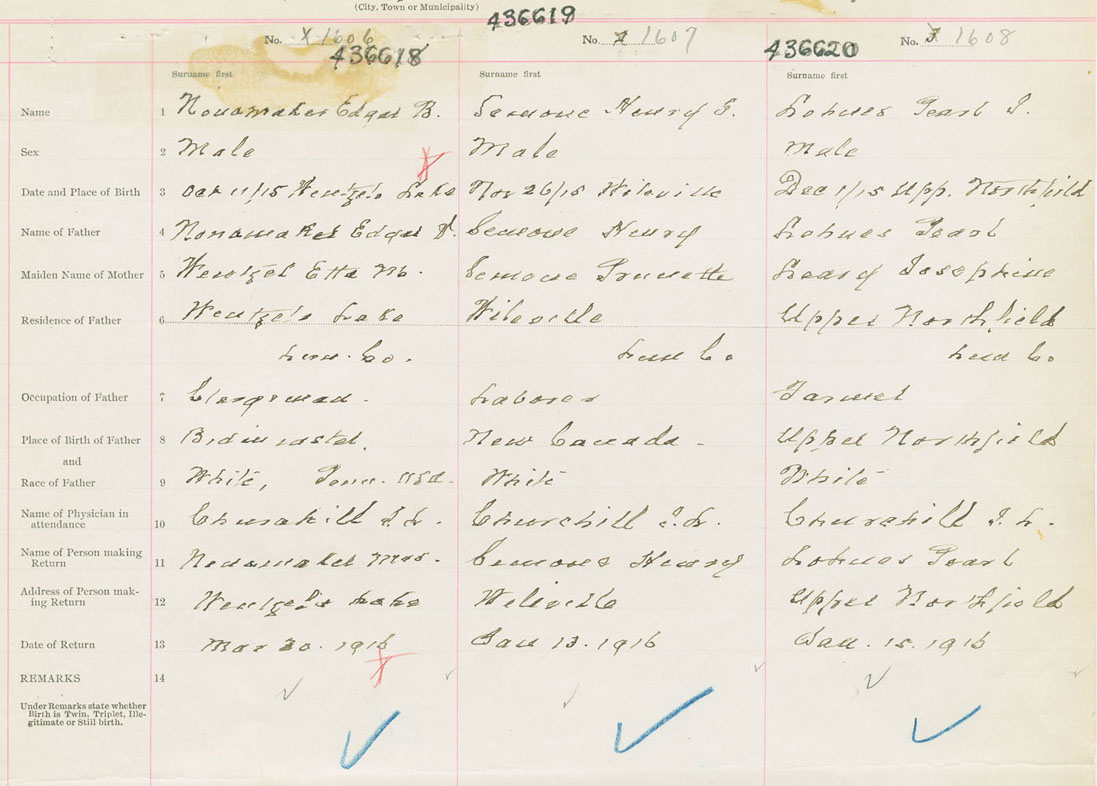 (City, Town or Municipality)
No. 1606
436618
436619
No. 1607
436620
No. 1608
Surname first
Surname first
Surname first
Name 1 Nonamaker Edgar B. Lemone Henry G. Lohnes Pearl J.
Sex 2 Male Male Male
Date and Place of Birth 3 Oct 11/15 Wentzel's Lake Nov 26/15 Wileville Dec 1/15 Upp. Northfield
Name of Father 4 Nonamaker Edgar Henry Lohnes Pearl
Maiden Name of Mother 5 Wentzel Etta M. Leary Josephine
Residence of Father 6 Wentzel's Lake Wileville Upper Northfield
Lun. Co. Lun Co. Lun Co
Occupation of Father 7 Clergyman. Laborer Farmer
Place of Birth of Father 8 New Canada. Upper Northfield
and
Race of Father 9 White, Penn. USA. White White
Name of Physician in
attendance 10 Churchill J. L. Churchill J. L. Churchill J. L.
Name of Person making
Return 11 Nonamaker Mrs. Henry Lohnes Pearl
Address of Person mak-
ing Return 12 Wentzel's Lake Wileville Upper Northfield
Date of Return 13 Mar 30. 1916 Jan 13. 1916 Jan. 15. 1916
REMARKS 14
Under Remarks state whether
Birth is Twin, Triplet, Ille-
gitimate or Still-birth.